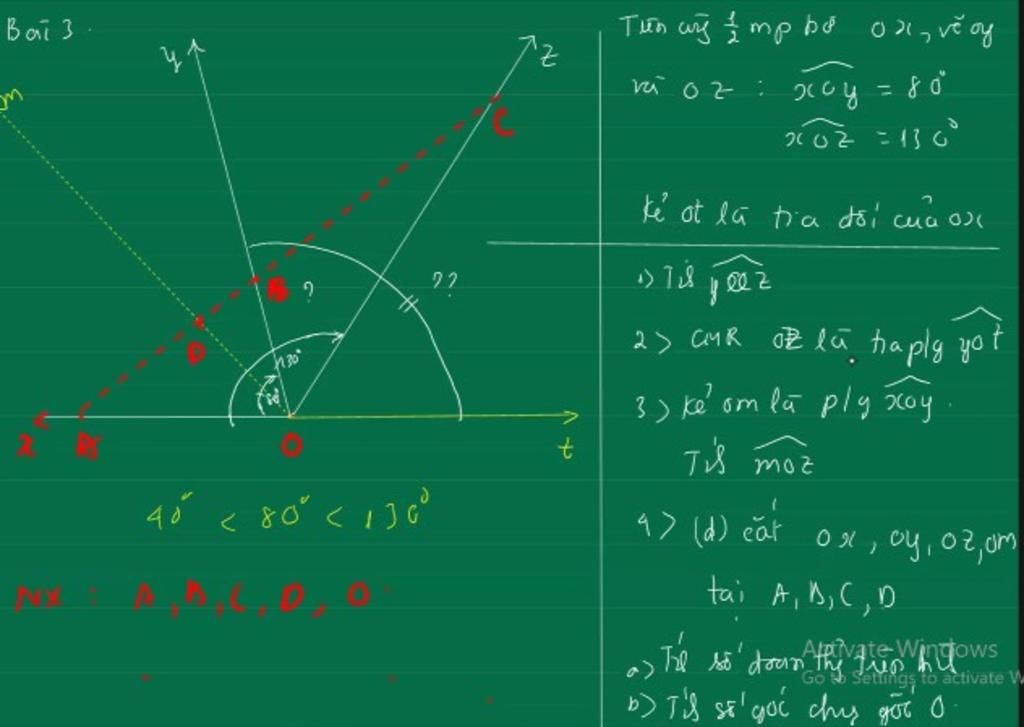 Bài 3
y
z
m
C
B
?
??
D
130°
80°
x
A
O
t
40° < 80° < 130°
NX : A, B, C, D, O
Trên cùng 1/2 mp bờ ox, vẽ oy
và oz : xoy = 80°
xoz = 130°
kẻ ot là tia đối của ox
1) yoz
2) CMR oz là tia p/g yot
3) kẻ om là p/g xoy.
moz
4) (d) cắt ox, oy, oz, om
tại A, B, C, D
a) số đoạn thẳng trên hình
b) số góc chung gốc O.
Activate Windows
Go to Settings to activate W